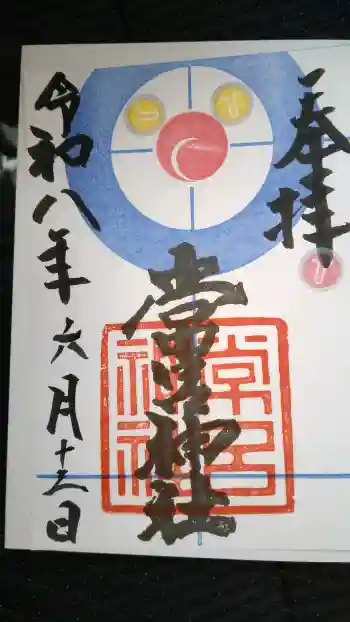 奉拝
常呂神社
常呂
神社
令和八年六月十三日